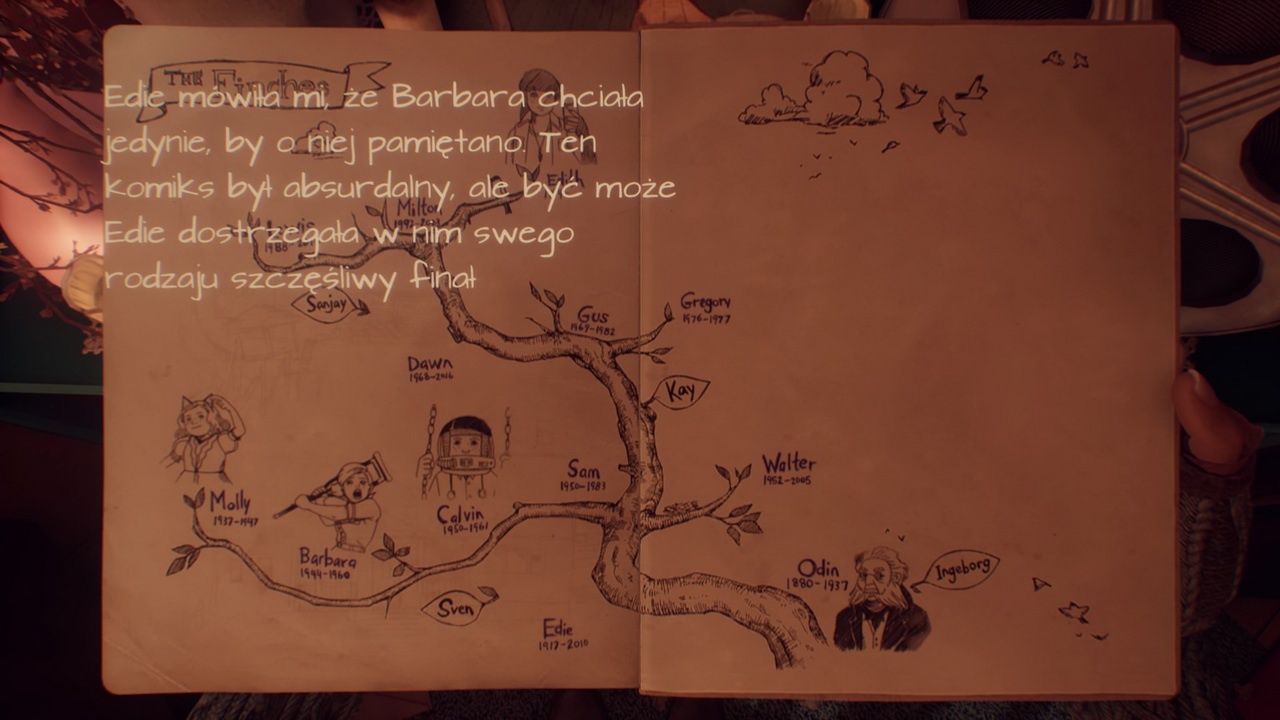 THE Finches
Edie mówiła mi, że Barbara chciała
jedynie, by o niej pamiętano. Ten
komiks był absurdalny, ale być może
Edie dostrzegała w nim swego
rodzaju szczęśliwy finał
Edith
Milton
Sanjay
Gus
1969-1982
Gregory
1976-1977
Dawn
1968-2016
Kay
Sam
1950-1983
Walter
1952-2005
Molly
1937-1947
Calvin
1950-1961
Barbara
1944-1960
Sven
Odin
1880-1937
Ingeborg
Edie
1917-2010